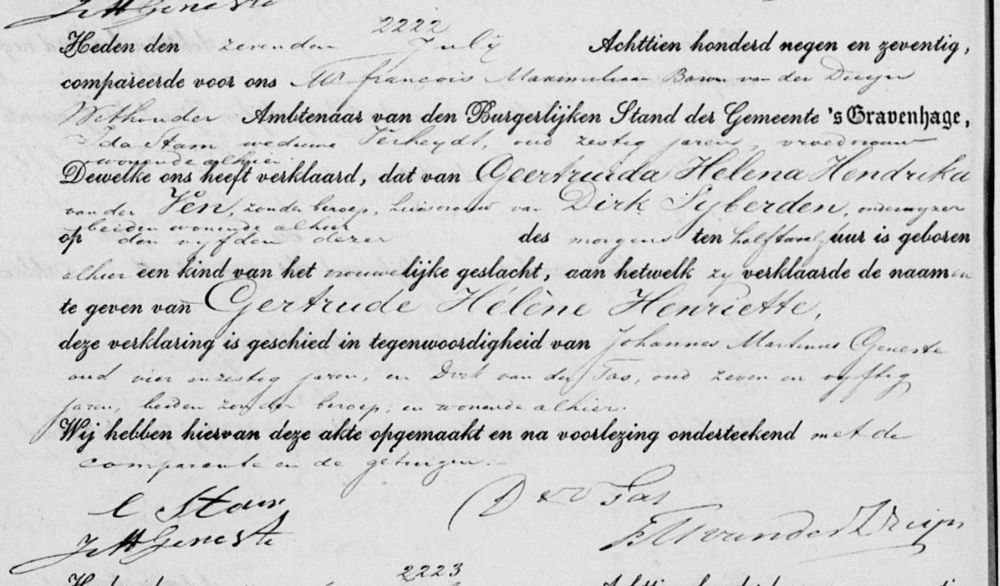 JMGeneste
2222
Heden den zevenden July Achttien honderd negen en zeventig,
compareerde voor ons Mr François Maximiliaan Baron van der Duijn
Wethouder Ambtenaar van den Burgerlijken Stand der Gemeente 's Gravenhage,
Ida Stam weduwe Verheydt, oud zestig jaren, vroedvrouw
wonende alhier
Dewelke ons heeft verklaard, dat van Geertruida Helena Hendrika
van der Vên, zonder beroep, huisvrouw van Dirk Syberden, onderwyzer
beiden wonende alhier
op den vyfden dezer des morgens ten half twaalf uur is geboren
alhier een kind van het vrouwelijke geslacht, aan hetwelk zy verklaarde de naamen
te geven van Gertrude Hélène Henriette,
deze verklaring is geschied in tegenwoordigheid van Johannes Martinus Geneste
oud vier en zestig jaren, en Dirk van der Tas, oud zeven en vyftig
jaren, beiden zonder beroep, en wonende alhier.
Wij hebben hiervan deze akte opgemaakt en na voorlezing onderteekend met de
comparante en de getuigen.
Stam
D v d Tas
JMGeneste
FM van der Duijn
2223
Heden Achttien honderd